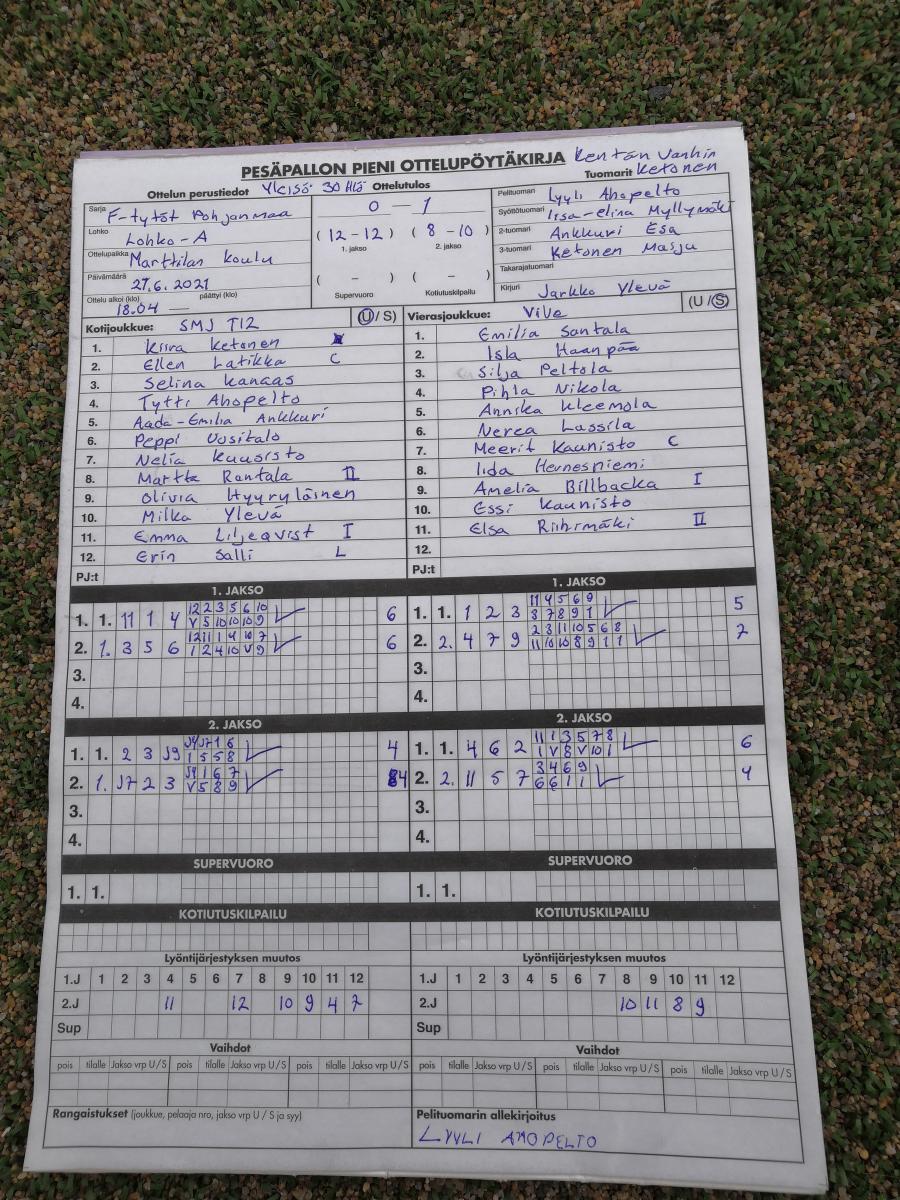 PESÄPALLON PIENI OTTELUPÖYTÄKIRJA Kentän vanhin
Ottelun perustiedot Yleisö 30 Hlö Ottelutulos Tuomarit Ketonen
Sarja F-tytöt Pohjanmaa
Lohko Lohko-A
Ottelupaikka Marttilan koulu
Päivämäärä 27.6.2021
Ottelu alkoi (klo) 18.04 päättyi (klo)
0 - 1
(12-12) (8-10)
1. jakso 2. jakso
( - ) ( - )
Supervuoro Kotiutuskilpailu
Pelituomari Lyyli Ahopelto
Syöttötuomari Iisa-elina Myllymäki
2-tuomari Ankkuri Esa
3-tuomari Ketonen Masju
Takarajatuomari
Kirjuri Jarkko Ylevä
Kotijoukkue: SMJ T12 (U/S)
1. Kiira Ketonen
2. Ellen Latikka C
3. Selina Kangas
4. Tytti Ahopelto
5. Aada-Emilia Ankkuri
6. Peppi Uusitalo
7. Nelia Kuusisto
8. Martta Rantala II
9. Olivia Hyyryläinen
10. Milka Ylevä
11. Emma Liljeqvist I
12. Erin Salli L
PJ:t
Vierasjoukkue: ViVe (U/S)
1. Emilia Santala
2. Isla Haanpää
3. Silja Peltola
4. Pihla Nikola
5. Annika Kleemola
6. Nerea Lassila
7. Meerit Kaunisto C
8. Iida Hernesniemi
9. Amelia Billbacka I
10. Essi Kaunisto
11. Elsa Riihimäki II
12.
PJ:t
1. JAKSO
1. 1. 11 1 4 12 2 3 5 6 10 6
V 5 10 10 10 9
2. 1. 3 5 6 12 11 1 4 10 7 6
1 2 4 10 V 9
3.
4.
1. JAKSO
1. 1. 1 2 3 11 4 5 6 9 5
3 7 8 9 1
2. 2. 4 7 9 2 3 11 10 5 6 8 7
11 10 10 8 9 1 1
3.
4.
2. JAKSO
1. 1. 2 3 J9 J4 J7 1 6 4
1 5 5 8
2. 1. J7 2 3 J9 1 6 7 4
V 5 8 9
3.
4.
2. JAKSO
1. 1. 4 6 2 11 1 3 5 7 8 6
1 V 8 V 10 1
2. 2. 11 5 7 3 4 6 9 4
6 6 1 1
3.
4.
SUPERVUORO SUPERVUORO
1. 1. 1. 1.
KOTIUTUSKILPAILU KOTIUTUSKILPAILU
Lyöntijärjestyksen muutos Lyöntijärjestyksen muutos
1.J 1 2 3 4 5 6 7 8 9 10 11 12 1.J 1 2 3 4 5 6 7 8 9 10 11 12
2.J 11 12 10 9 4 7 2.J 10 11 8 9
Sup Sup
Vaihdot Vaihdot
pois tilalle Jakso vrp U/S pois tilalle Jakso vrp U/S pois tilalle Jakso vrp U/S pois tilalle Jakso vrp U/S pois tilalle Jakso vrp U/S pois tilalle Jakso vrp U/S
Rangaistukset (joukkue, pelaaja nro, jakso vrp U / S ja syy)
Pelituomarin allekirjoitus
LYYLI AHOPELTO